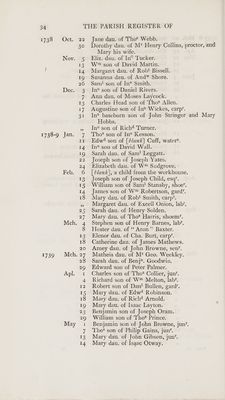 34 THE PARISH REGISTER OF
1738 Oct. 22 Jane dau. of Thoˢ Webb.
30 Dorothy dau. of Mʳ Henry Collins, proctor, and
Mary his wife.
Nov. 5 Eliz. dau. of Inº Tucker.
13 Wᵐ son of David Martin.
14 Margaret dau. of Robᵗ Bissell.
19 Susanna dau. of Andʷ Shore.
26 Samˡ son of Inº Smith.
Dec. 3 Inº son of Daniel Rivers.
7 Ann dau. of Moses Laycock.
15 Charles Head son of Thoˢ Allen.
17 Augustine son of Inº Wickes, carpʳ.
31 Inº baseborn son of John Stringer and Mary
Hobbs.
„ Inº son of Richᵈ Turner.
1738-9 Jan. 7 Thoˢ son of Inº Kemson.
11 Edwᵈ son of [blank] Cuff, waterᵗ.
14 Inº son of David Wall.
19 Sarah dau. of Samˡ Leggatt.
22 Joseph son of Joseph Yates.
24 Elizabeth dau. of Wᵐ Sedgrove.
Feb. 6 [blank], a child from the workhouse.
15 Joseph son of Joseph Child, esqʳ.
15 William son of Samˡ Stansby, shoeʳ.
14 James son of Wᵐ Robertson, gardʳ.
18 Mary dau. of Robᵗ Smith, carpʳ.
„ Margaret dau. of Ezcell Onion, labʳ.
25 Sarah dau. of Henry Solden.
27 Mary dau. of Thoˢ Harris, shoemʳ.
Mch. 4 Stephen son of Henry Barnes, labʳ.
8 Hester dau. of "Aron" Baxter.
13 Elenor dau. of Cha. Burt, carpʳ.
18 Catherine dau. of James Mathews.
20 Amey dau. of John Browne, senʳ.
1739 Mch. 27 Matheis dau. of Mʳ Geo. Weekley.
28 Sarah dau. of Benjⁿ. Goodwin.
29 Edward son of Peter Palmer.
Apl. 1 Charles son of Thoˢ Collier, junʳ.
4 Richard son of Wᵐ Melton, labʳ.
12 Robert son of Danˡ Bullen, gardʳ.
15 Mary dau. of Edwᵈ Robinson.
18 Mary dau. of Richᵈ Arnold.
19 Mary dau. of Isaac Layton.
23 Benjamin son of Joseph Oram.
29 William son of Thoˢ Prince.
May 1 Benjamin son of John Browne, junʳ.
7 Thoˢ son of Philip Gains, junʳ.
13 Mary dau. of John Gibson, junʳ.
14 Mary dau. of Isaac Otway.